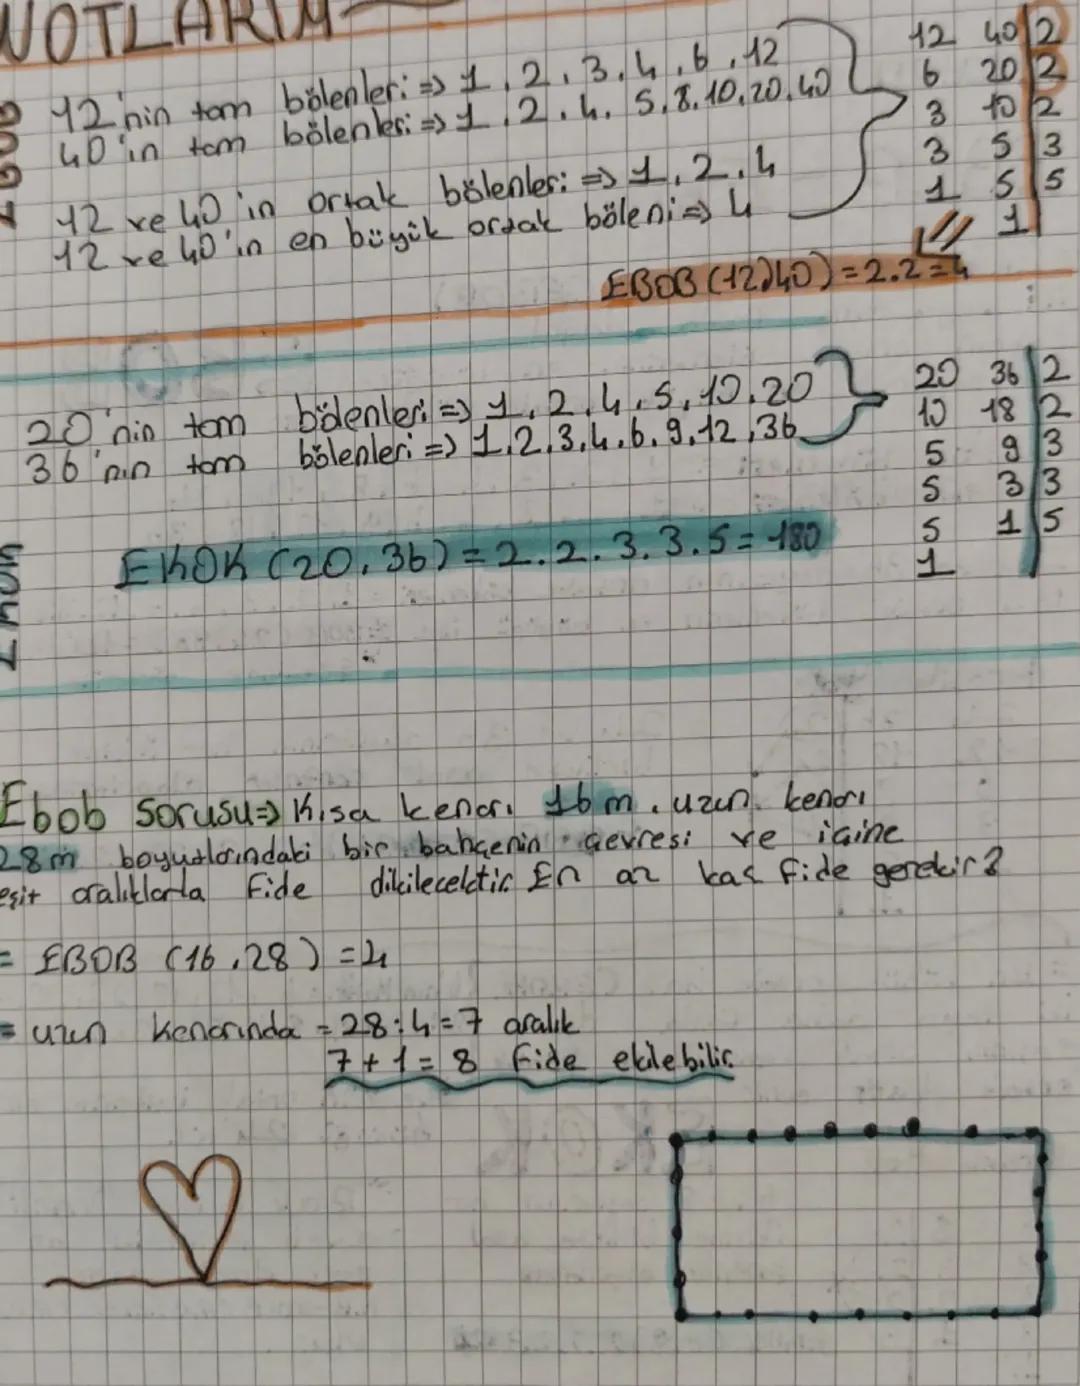 NOTLARIM
12'nin tam bölenleri => 1, 2, 3, 4, 6, 12
40'ın tam bölenleri => 1, 2, 4, 5, 8, 10, 20, 40
12 ve 40'ın ortak bölenleri => 1, 2, 4
12 ve 40'ın en büyük ortak böleni => 4
12 40 | 2
6 20 | 2
3 10 | 2
3 5 | 3
1 5 | 5
1
EBOB (12,40) = 2.2 = 4
20'nin tam bölenleri => 1, 2, 4, 5, 10, 20
36'nın tam bölenleri => 1, 2, 3, 4, 6, 9, 12, 36
20 36 | 2
10 18 | 2
5 9 | 3
5 3 | 3
5 1 | 5
1
EKOK (20, 36) = 2.2.3.3.5 = 180
Ebob sorusu => Kısa kenarı 16 m, uzun kenarı
28m boyutlarındaki bir bahçenin çevresi ve içine
eşit aralıklarla fide dikilecektir En az kaç fide gerekir?
= EBOB (16, 28) = 4
= uzun kenarında = 28:4 = 7 aralık
7 + 1 = 8 fide ekilebilir.